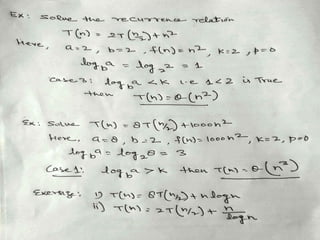 Ex: Solve the recurrence relation
T(n) = 2T(n/2) + n²
Here, a=2, b=2, f(n)=n², k=2, p=0
log_b a = log_2 2 = 1
Case 3: log_b a < k i.e 1<2 is True
then T(n) = θ(n²)
Ex: Solve T(n) = 8T(n/2) + 1000n²
Here, a=8, b=2, f(n)=1000n², k=2, p=0
log_b a = log_2 8 = 3
Case 1: log_b a > k then T(n) = θ(n³)
Exercise: i) T(n) = 8T(n/2) + n log n
ii) T(n) = 2T(n/2) + n/log n